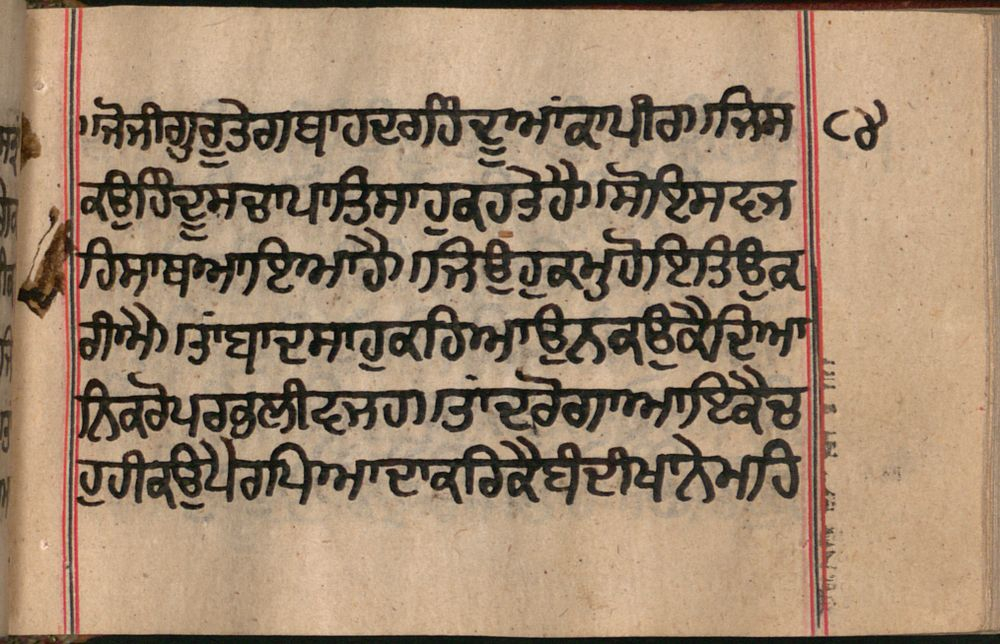 ।ਜੋਜੀਗੁਰੂਤੇਗਬਾਹਦਰਹਿੰਦੂਆਂਕਾਪੀਰ।।ਜਿਸ ੮੪
ਕਉਹਿੰਦੂਸਚਾਪਾਤਿਸਾਹੁਕਹਤੇਹੈ।।ਸੋਇਸਵਜ
ਹਿਸਾਥਆਇਆਹੈ।।ਜਿਉਹੁਕਮੁਹੋਇਤਿਉਕ
ਰੀਐ।।ਤਾਂਬਾਦਸਾਹੁਕਹਿਆਉਨਕਉਕੈਦਿਆ
ਨਿਕਰੋਪਰਭਲੀਵਜਹ।।ਤਾਂਦਰੋਗਾਆਇਕੈਚ
ਹੁਹੀਕਉਪੈਰਪਿਆਦਾਕਰਿਕੈਬੰਦੀਖਾਨੇਮਹਿ